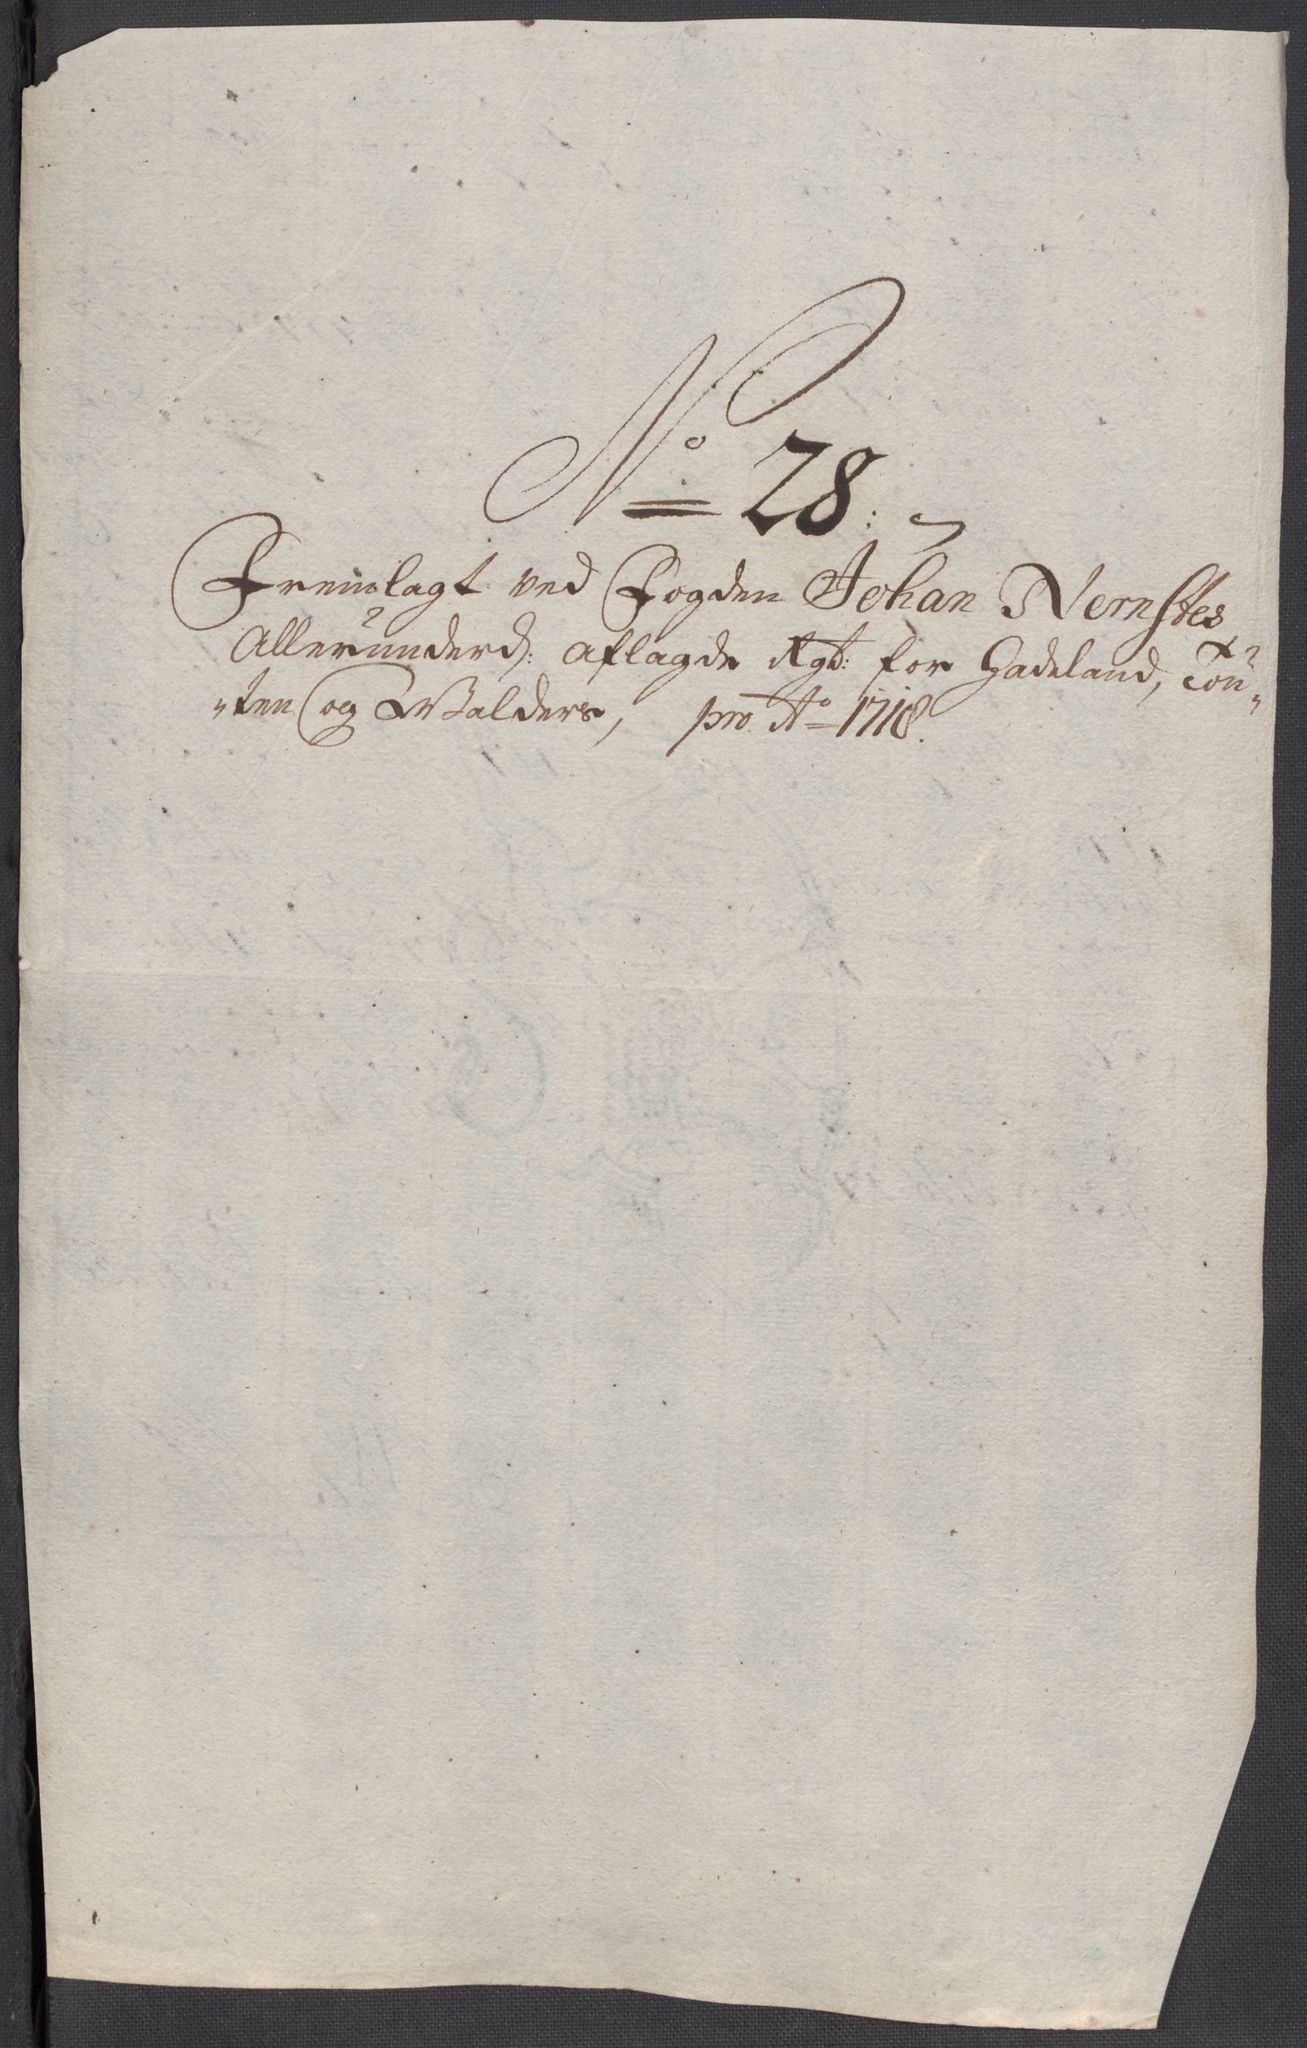 No 28:
Fremlagt ved Fogden Johan Nernstes
Allerunderd: aflagde Rgb: for Hadeland, Tou-
"ten og Walders, pro Ao 1718.